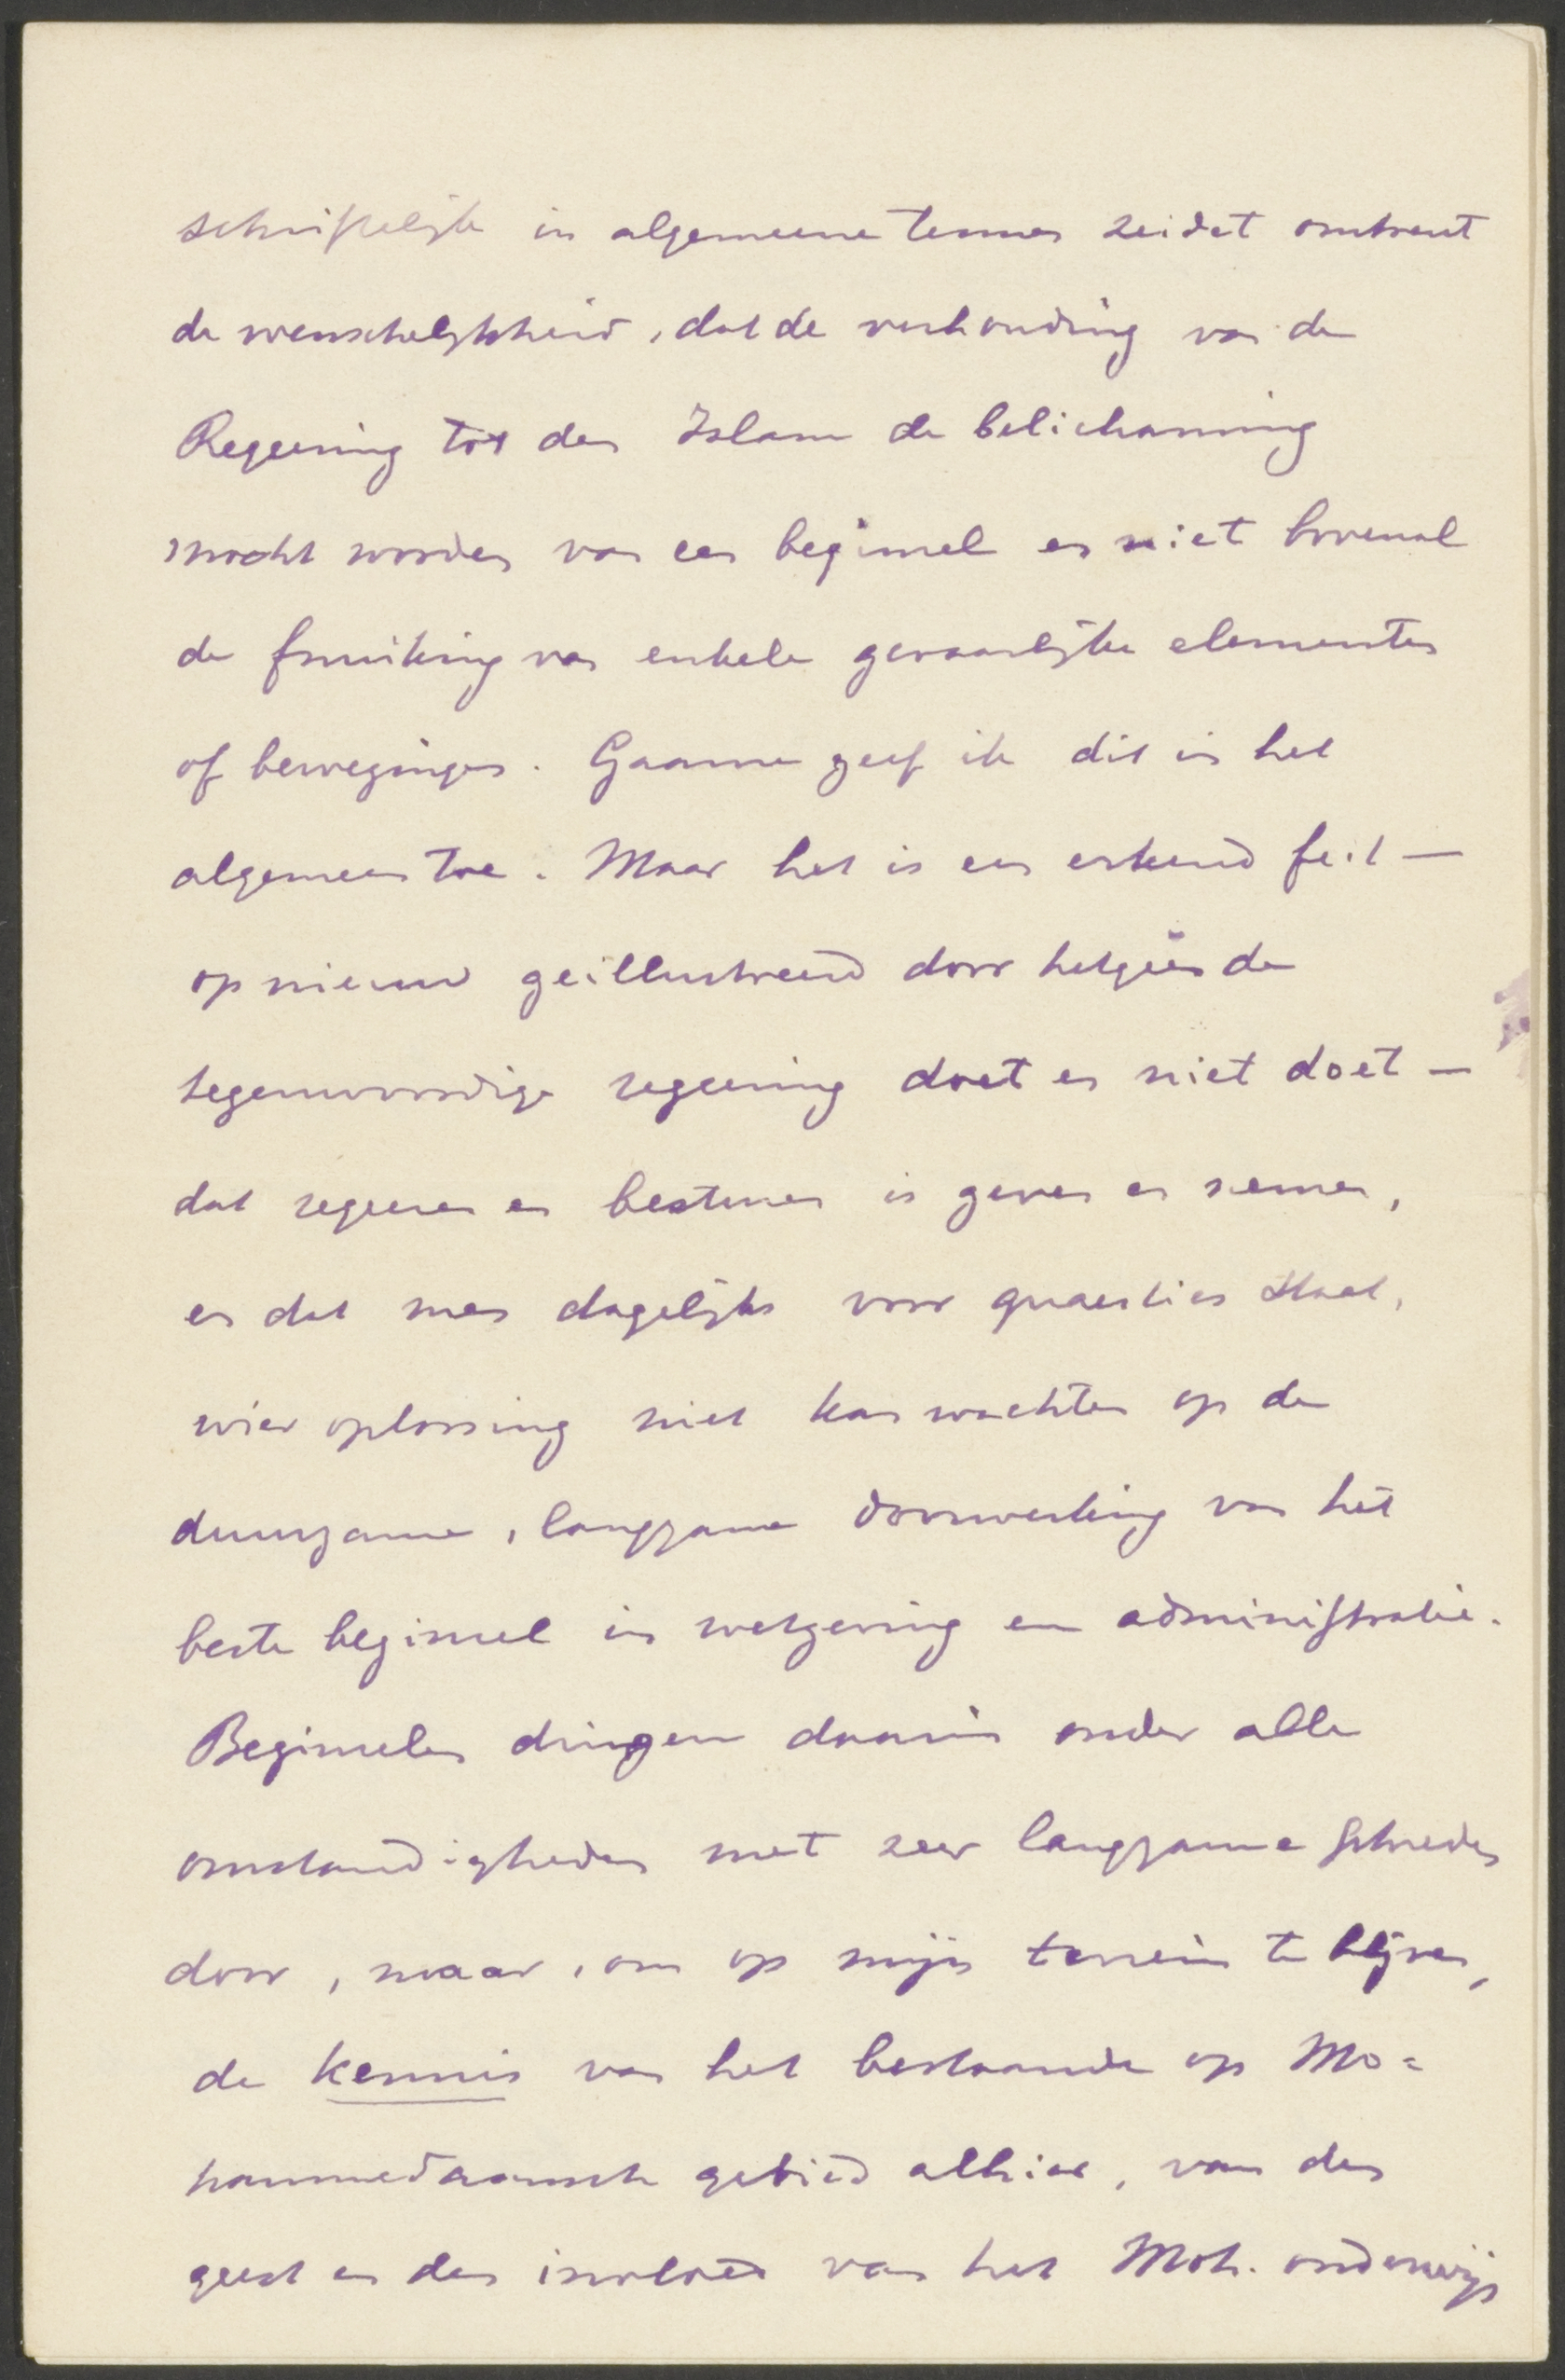 schriftelijk in algemeene termen zeidet omtrent
de wenschelijkheid, dat de verhouding van de
Regeering tot den Islam de belichaming
mocht worden van een beginsel en niet bovenal
de fnuiking van enkele gevaarlijke elementen
of bewegingen. Gaarne geef ik dit in het
algemeen toe. Maar het is een erkend feit —
op nieuw geïllustreerd door hetgeen de
tegenwoordige regeering doet en niet doet —
dat regeeren en besturen is geven en nemen,
en dat men dagelijks voor quaesties staat,
wier oplossing niet kan wachten op de
duurzame, langzame doorwerking van het
beste beginsel in wetgeving en administratie.
Beginselen dringen daarin onder alle
omstandigheden met zeer langzame schreden
door, maar, om op mijn terrein te blijven,
de kennis van het bestaande op Mo=
hammedaansch gebied alhier, van den
geest en den invloed van het Moh. onderwijs